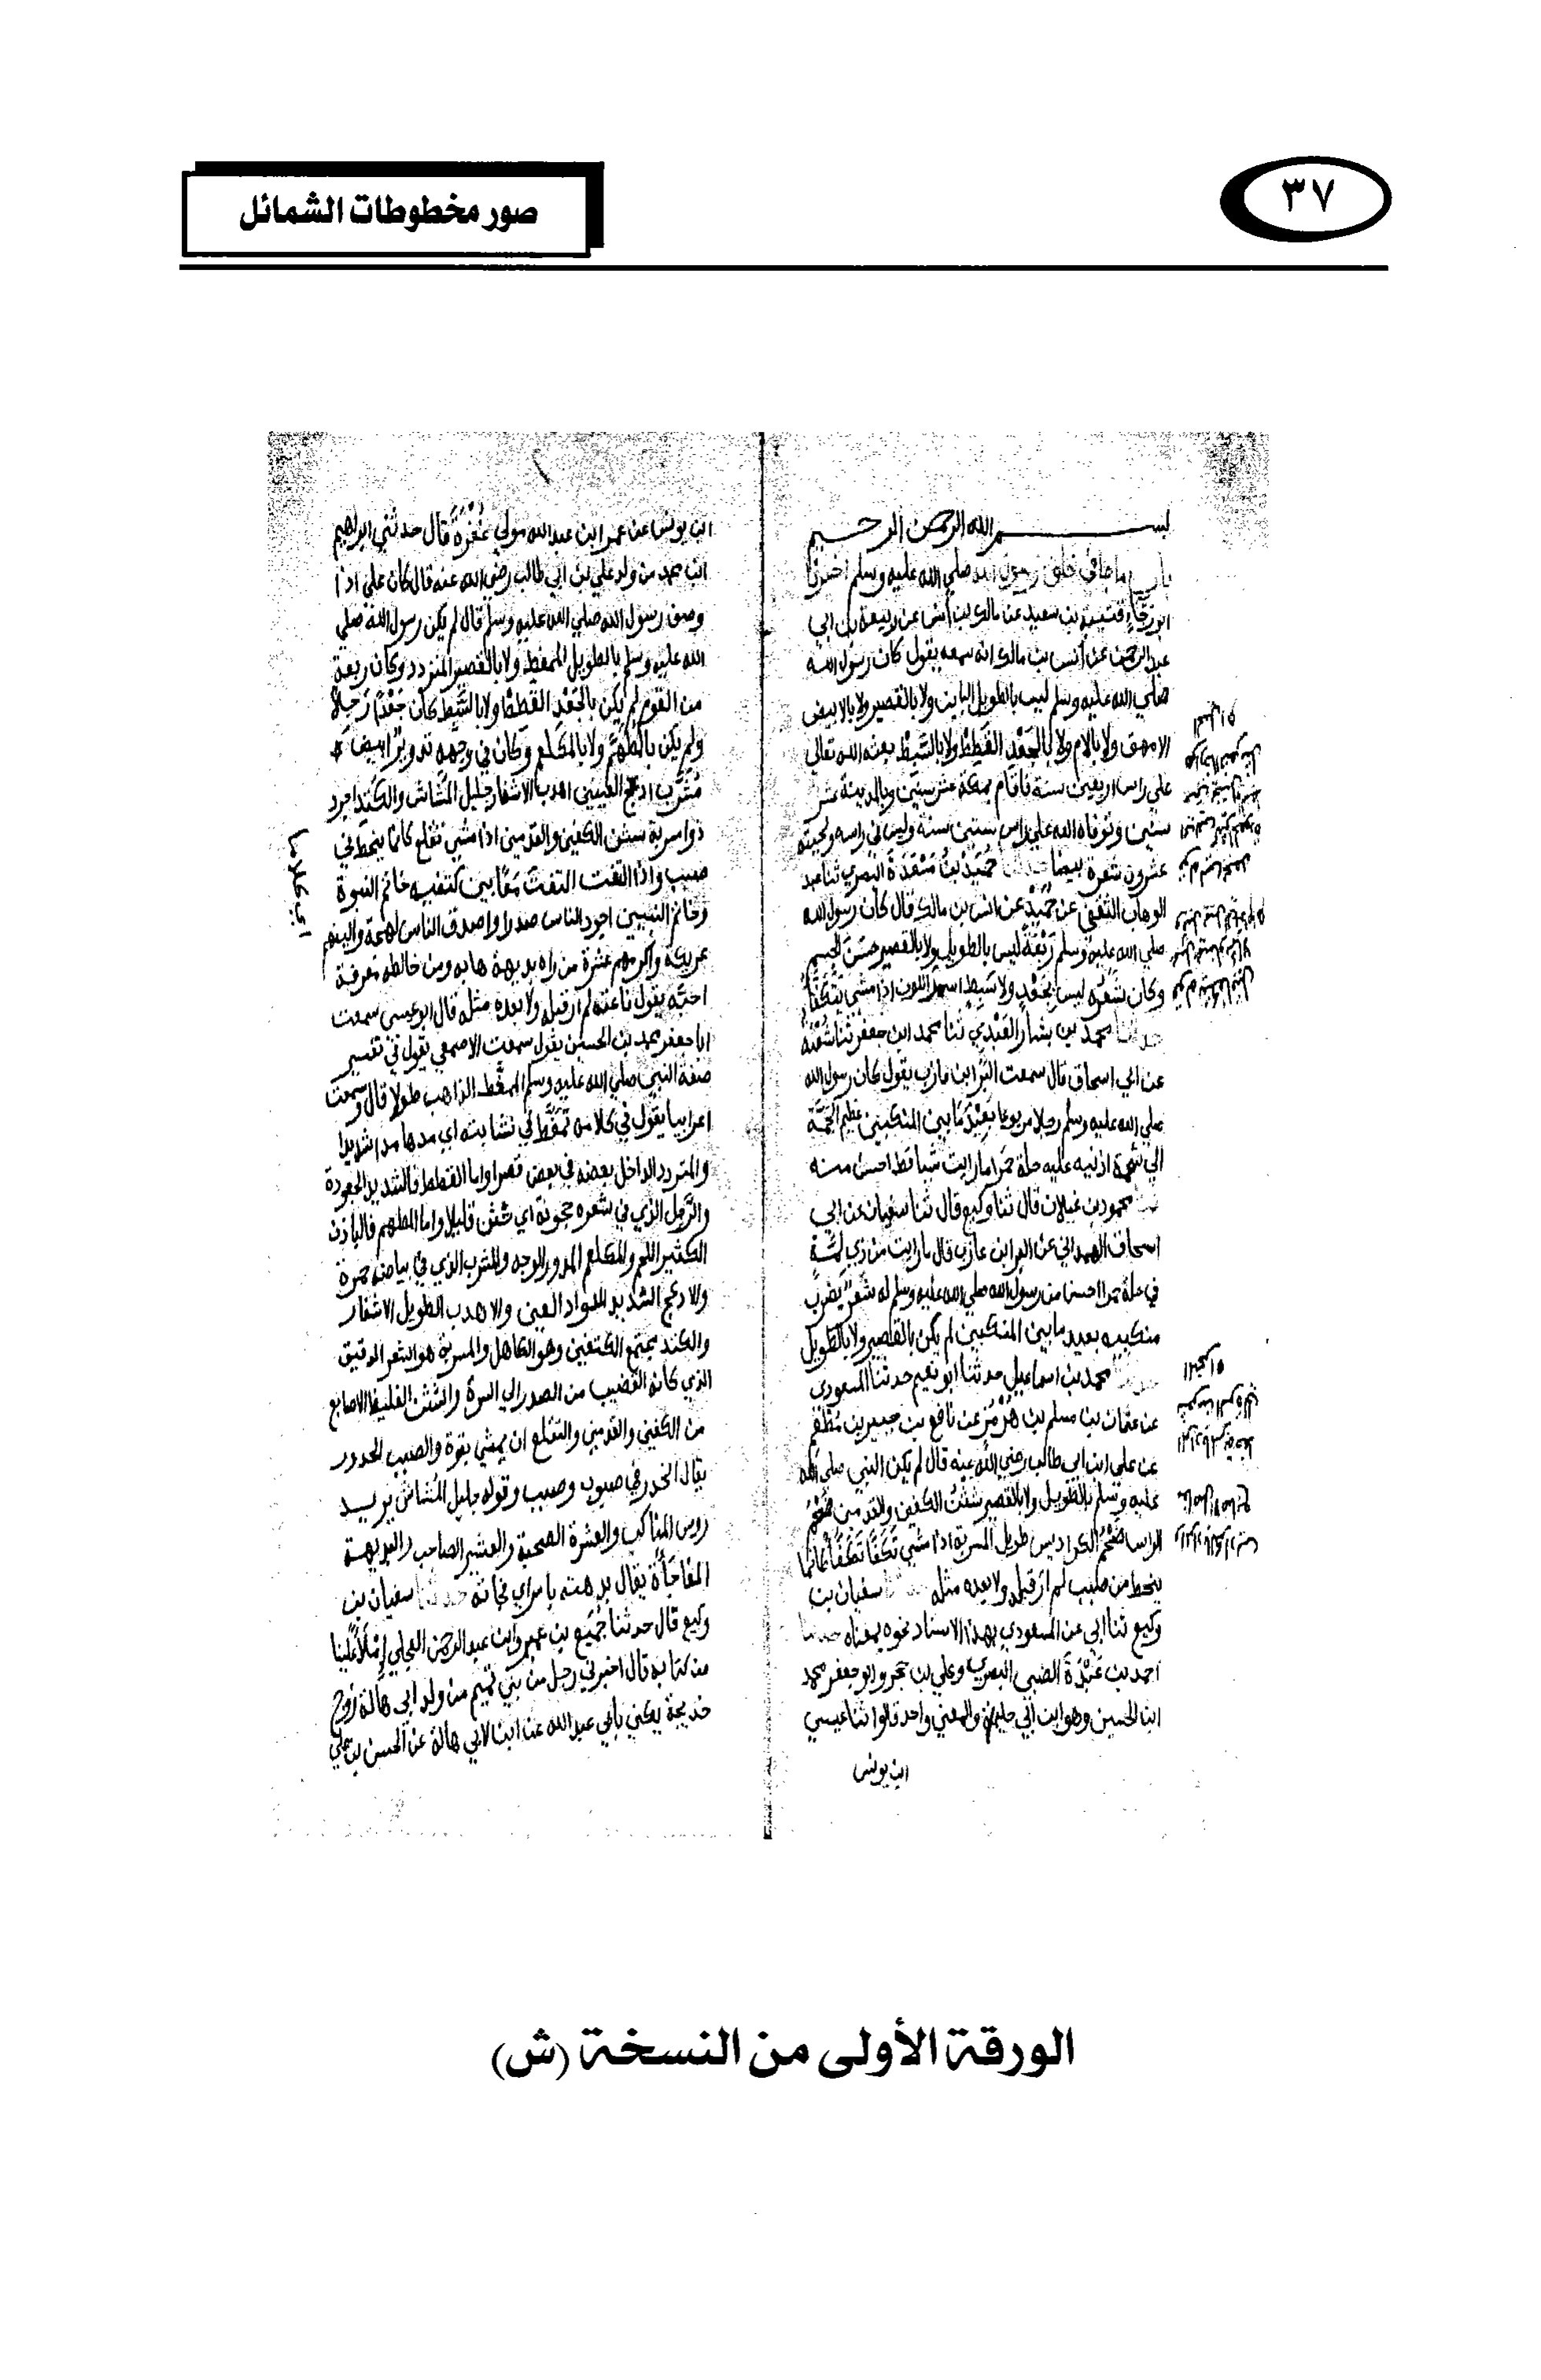 ٣٧
صور مخطوطات الشمائل
بسم الله الرحمن الرحيم
باب ما جا في خلق رسول الله صلي الله عليه وسلم اخبرنا
ابو رجاء قتيبة بن سعيد عن مالك بن أنس عن ربيعة بن ابي
عبد الرحمن عن أنس بن مالك انه سمعه يقول كان رسول الله
صلي الله عليه وسلم ليس بالطويل الباين ولا بالقصير ولا بالابيض
الامهق ولا بالادم ولا بالجعد القطط ولا بالسبط بعثه الله تعالى
علي راس اربعين سنة فاقام بمكة عشر سنين وبالمدينة عشر
سنين وتوفاه الله علي راس ستين سنة وليس في راسه ولحيته
عشرون شعرة بيضا حميد بن مسعدة البصري ثنا عبد
الوهاب الثقفي عن حميد عن انس بن مالك قال كان رسول الله
صلي الله عليه وسلم ربعة ليس بالطويل ولا بالقصير حسن الجسم
وكان شعره ليس بجعد ولا سبط اسمر اللون اذا مشي يتكفأ
حدثنا محمد بن بشار العبدي ثنا محمد ابن جعفر ثنا شعبة
عن ابي اسحاق قال سمعت البرا ابن عازب يقول كان رسول الله
صلي الله عليه وسلم رجلا مربوعا بعيد ما بين المنكبين عظيم الجمة
الي شحمة اذنيه عليه حلة حمرا ما رايت شيا قط احسن منه
محمود بن غيلان قال ثنا وكيع قال ثنا سفيان عن ابي
اسحاق الهمداني عن البرا ابن عازب قال ما رايت من ذي لمة
في حلة حمرا احسن من رسول الله صلي الله عليه وسلم له شعر يضرب
منكبيه بعيد ما بين المنكبين لم يكن بالقصير ولا بالطويل
محمد بن اسماعيل حدثنا ابو نعيم حدثنا المسعودي
عن عثمان بن مسلم بن هرمز عن نافع بن جبير بن مطعم
عن علي ابن ابي طالب رضي الله عنه قال لم يكن النبي صلي الله
عليه وسلم بالطويل ولا بالقصير شثن الكفين والقدمين ضخم
الراس ضخم الكراديس طويل المسربة اذا مشي تكفا تكفأ كانما
ينحط من صبب لم ار قبله ولا بعده مثله سفيان بن
وكيع ثنا ابي عن المسعودي بهذا الاسناد نحوه بمعناه حدثنا
احمد بن عبدة الضبي البصري وعلي بن حجر وابو جعفر محمد
ابن الحسين وهو ابن ابي حليمة والمعني واحد قالوا ثنا عيسي
ابن يونس
ابن يونس عن عمر ابن عبد الله مولي غفرة قال حدثني ابراهيم
ابن محمد من ولد علي بن ابي طالب رضي الله عنه قال كان علي اذا
وصف رسول الله صلي الله عليه وسلم قال لم يكن رسول الله صلي
الله عليه وسلم بالطويل الممغط ولا بالقصير المتردد وكان ربعة
من القوم لم يكن بالجعد القطط ولا بالسبط كان جعدا رجلا
ولم يكن بالمطهم ولا بالمكلثم وكان في وجهه تدوير ابيض
مشرب ادعج العينين اهدب الاشفار جليل المشاش والكتد اجرد
ذو مسربة شثن الكفين والقدمين اذا مشي تقلع كانما ينحط في
صبب واذا التفت التفت معا بين كتفيه خاتم النبوة
وخاتم النبيين اجود الناس صدرا واصدق الناس لهجة والينهم
عريكة واكرمهم عشرة من راه بديهة هابه ومن خالطه معرفة
احبه يقول ناعته لم ار قبله ولا بعده مثله قال ابو عيسي سمعت
ابا جعفر محمد بن الحسين يقول سمعت الاصمعي يقول في تفسير
صفة النبي صلي الله عليه وسلم الممغط الذاهب طولا قال وسمعت
اعرابيا يقول في كلامه تمغط في نشابته اي مدها مدا شديدا
والمتردد الداخل بعضه في بعض قصرا واما القطط فالشديد الجعودة
والرجل الذي في شعره حجونة اي تثن قليلا واما المطهم فالبادن
الكثير اللحم والمكلثم المدور الوجه والمشرب الذي في بياضه حمرة
والادعج الشديد سواد العين والاهدب الطويل الاشفار
والكتد مجتمع الكتفين وهو الكاهل والمسربة هو الشعر الدقيق
الذي كانه القضيب من الصدر الي السرة والشثن الغليظ الاصابع
من الكفين والقدمين والتقلع ان يمشي بقوة والصبب الحدور
يقال انحدر في صبوب وصبب وقوله جليل المشاش يريد
روس المناكب والعشرة الصحبة والعشير الصاحب والبديهة
المفاجأة يقال بدهته بامر اي فجاته حدثنا سفيان بن
وكيع قال حدثنا جميع بن عمير وابن عبد الرحمن العجلي املاء علينا
من كتابه قال اخبرني رجل من بني تميم من ولد ابي هالة زوج
خديجة يكني بابي عبد الله عن ابن لابي هالة عن الحسن بن علي
الورقة الأولى من النسخة (ش)